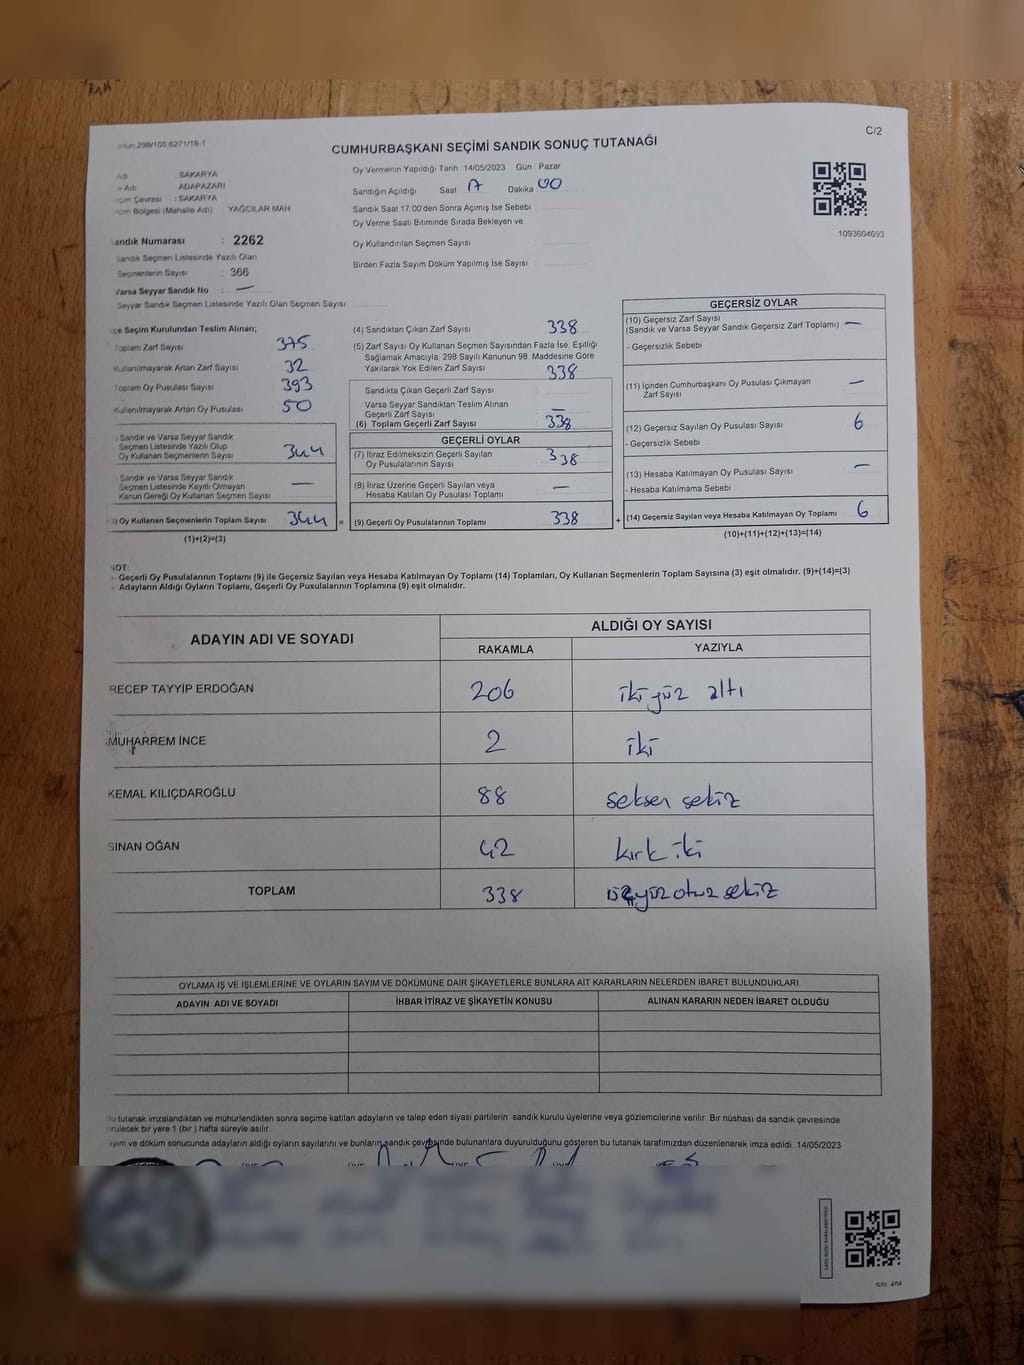 298/105;6271/16-1
C/2
CUMHURBAŞKANI SEÇİMİ SANDIK SONUÇ TUTANAĞI
Oy Vermenin Yapıldığı Tarih 14/05/2023 Gün : Pazar
: SAKARYA
Adı ADAPAZARI
Çevresi : SAKARYA
Bölgesi (Mahalle Adı) YAĞCILAR MAH
Sandığın Açıldığı Saat Dakika 00
Sandık Saat 17:00'den Sonra Açımış İse Sebebi
Oy Verme Saati Bitiminde Sırada Bekleyen ve
Oy Kullandırılan Seçmen Sayısı
Birden Fazla Sayım Döküm Yapılmış İse Sayısı
1093604693
Sandık Numarası : 2262
Sandık Seçmen Listesinde Yazılı Olan
Seçmenlerin Sayısı : 366
Varsa Seyyar Sandık No : —
Seyyar Sandık Seçmen Listesinde Yazılı Olan Seçmen Sayısı:
Seçim Kurulundan Teslim Alınan;
Toplam Zarf Sayısı 375
Kullanılmayarak Artan Zarf Sayısı 32
Toplam Oy Pusulası Sayısı 393
Kullanılmayarak Artan Oy Pusulası 50
Sandık ve Varsa Seyyar Sandık
Seçmen Listesinde Yazılı Olup
Oy Kullanan Seçmenlerin Sayısı 344
Sandık ve Varsa Seyyar Sandık
Seçmen Listesinde Kayıtlı Olmayan
Kanun Gereği Oy Kullanan Seçmen Sayısı —
Oy Kullanan Seçmenlerin Toplam Sayısı 344 =
(1)+(2)=(3)
(4) Sandıktan Çıkan Zarf Sayısı 338
(5) Zarf Sayısı Oy Kullanan Seçmen Sayısından Fazla İse, Eşitliği
Sağlamak Amacıyla, 298 Sayılı Kanunun 98. Maddesine Göre
Yakılarak Yok Edilen Zarf Sayısı 338
Sandıkta Çıkan Geçerli Zarf Sayısı
Varsa Seyyar Sandıktan Teslim Alınan
Geçerli Zarf Sayısı —
(6) Toplam Geçerli Zarf Sayısı 338
GEÇERLİ OYLAR
(7) İtiraz Edilmeksizin Geçerli Sayılan
Oy Pusulalarının Sayısı 338
(8) İtiraz Üzerine Geçerli Sayılan veya
Hesaba Katılan Oy Pusulası Toplamı —
(9) Geçerli Oy Pusulalarının Toplamı 338 +
GEÇERSİZ OYLAR
(10) Geçersiz Zarf Sayısı
(Sandık ve Varsa Seyyar Sandık Geçersiz Zarf Toplamı) —
- Geçersizlik Sebebi
(11) İçinden Cumhurbaşkanı Oy Pusulası Çıkmayan
Zarf Sayısı —
(12) Geçersiz Sayılan Oy Pusulası Sayısı 6
- Geçersizlik Sebebi
(13) Hesaba Katılmayan Oy Pusulası Sayısı —
- Hesaba Katılmama Sebebi
(14) Geçersiz Sayılan veya Hesaba Katılmayan Oy Toplamı 6
(10)+(11)+(12)+(13)=(14)
NOT:
- Geçerli Oy Pusulalarının Toplamı (9) ile Geçersiz Sayılan veya Hesaba Katılmayan Oy Toplamı (14) Toplamları, Oy Kullanan Seçmenlerin Toplam Sayısına (3) eşit olmalıdır. (9)+(14)=(3)
- Adayların Aldığı Oyların Toplamı, Geçerli Oy Pusulalarının Toplamına (9) eşit olmalıdır.
ADAYIN ADI VE SOYADI ALDIĞI OY SAYISI
RAKAMLA YAZIYLA
RECEP TAYYİP ERDOĞAN 206 iki yüz altı
MUHARREM İNCE 2 iki
KEMAL KILIÇDAROĞLU 88 seksen sekiz
SİNAN OĞAN 42 kırk iki
TOPLAM 338 üçyüzotuz sekiz
OYLAMA İŞ VE İŞLEMLERİNE VE OYLARIN SAYIM VE DÖKÜMÜNE DAİR ŞİKAYETLERLE BUNLARA AİT KARARLARIN NELERDEN İBARET BULUNDUKLARI
ADAYIN ADI VE SOYADI İHBAR İTİRAZ VE ŞİKAYETİN KONUSU ALINAN KARARIN NEDEN İBARET OLDUĞU
tutanak imzalandıktan ve mühürlendikten sonra seçime katılan adayların ve talep eden siyasi partilerin sandık kurulu üyelerine veya gözlemcilerine verilir. Bir nüshası da sandık çevresinde
bir yere 1 (bir) hafta süreyle asılır.
ve döküm sonucunda adayların aldığı oyların sayılarını ve bunların sandık çevresinde bulunanlara duyurulduğunu gösteren bu tutanak tarafımızdan düzenlenerek imza edildi. 14/05/2023